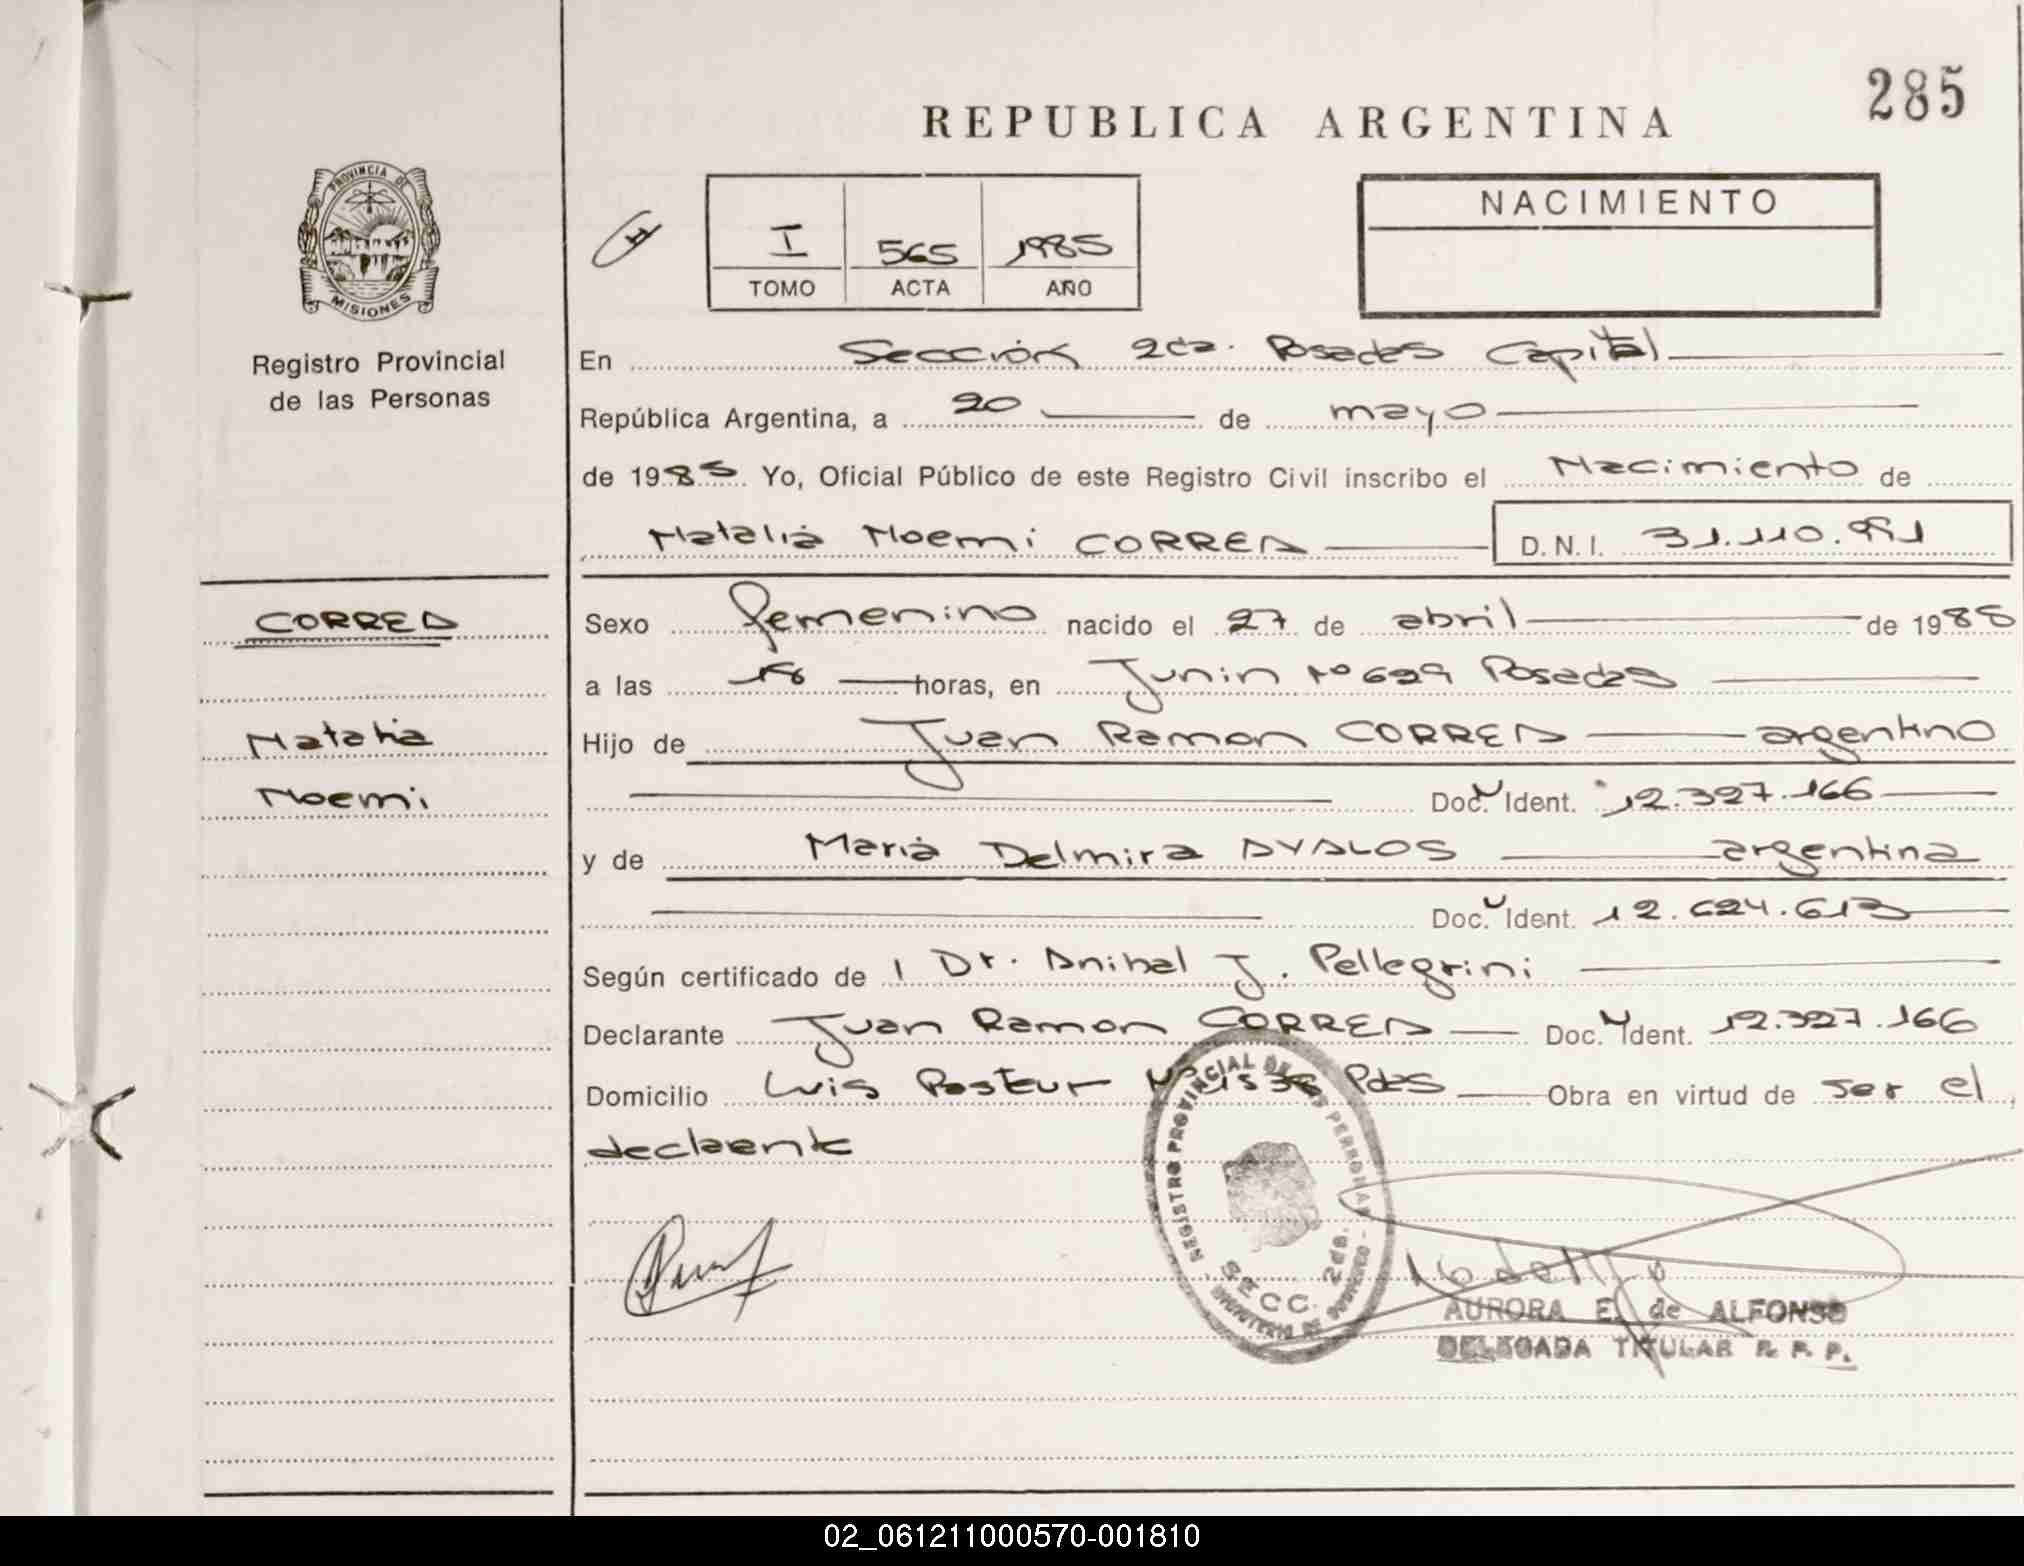 285
REPUBLICA ARGENTINA
PROVINCIA DE
MISIONES
Registro Provincial
de las Personas
I 565 1985
TOMO ACTA AÑO
NACIMIENTO
En Sección 2da. Posadas Capital
República Argentina, a 20 de mayo
de 1985 Yo, Oficial Público de este Registro Civil inscribo el Nacimiento de
Natalia Noemi CORREA D.N.I. 31.110.991
CORREA
Natalia
Noemi
Sexo femenino nacido el 27 de abril de 1985
a las horas, en Junin Nº 629 Posadas
Hijo de Juan Ramon CORREA argentino
Doc. Ident. 12.327.166
y de Maria Delmira AYALOS argentina
Doc. Ident. 12.624.613
Según certificado de Dr. Anibal J. Pellegrini
Declarante Juan Ramon CORREA Doc. Ident. 12.327.166
Domicilio Luis Pasteur Nº 1536 Pdas Obra en virtud de ser el
declaente
REGISTRO PROVINCIAL DE LAS PERSONAS
SECC. 2da.
MINISTERIO DE GOBIERNO
AURORA E. de ALFONSO
DELEGADA TITULAR R. P. P.
02_061211000570-001810